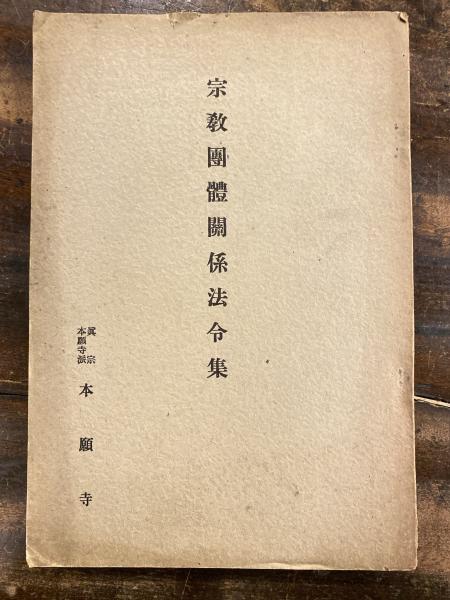 宗教團體關係法令集
眞宗
本願寺派
本願寺